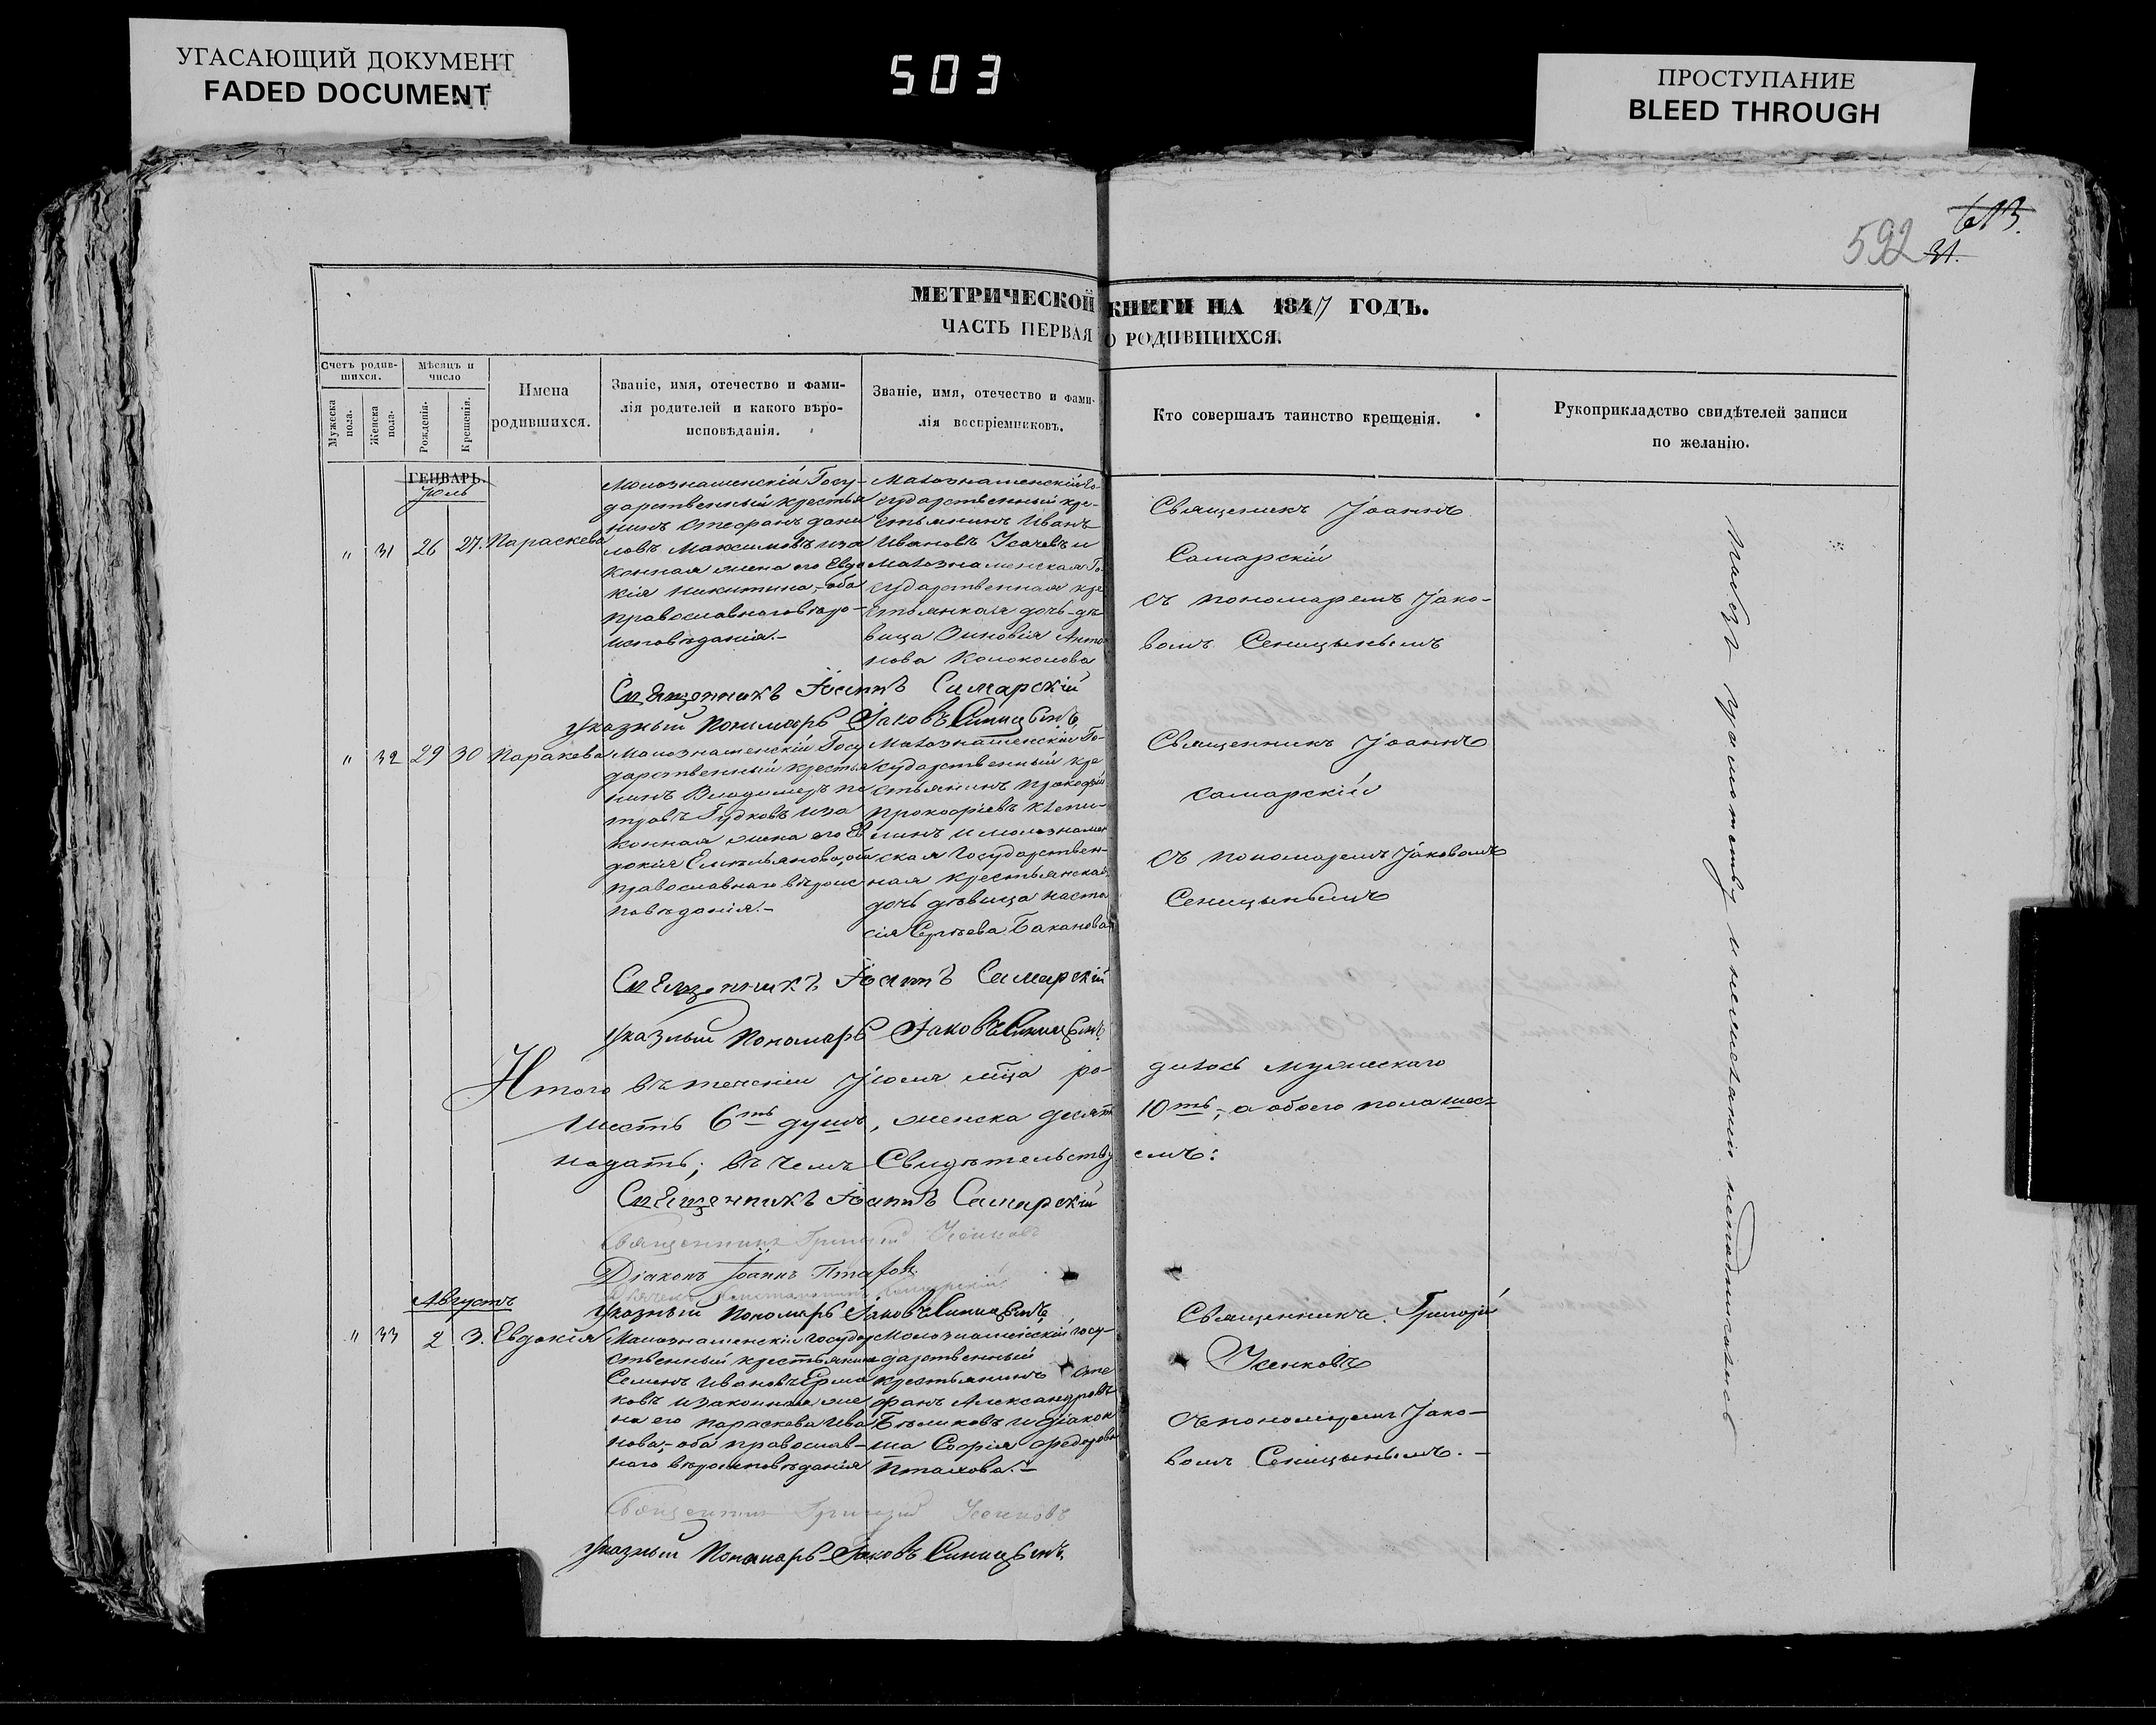 УГАСАЮЩИЙ ДОКУМЕНТ
FADED DOCUMENT
503
ПРОСТУПАНИЕ
BLEED THROUGH
613.
592 31.
МЕТРИЧЕСКОЙ КНИГИ НА 1847 ГОДЪ.
ЧАСТЬ ПЕРВАЯ О РОДИВШИХСЯ.
Счетъ родив-
шихся.
Мужеска
пола.
Женска
пола.
Мѣсяцъ и
число
Рожденія.
Крещенія.
Имена
родившихся.
Званіе, имя, отечество и фами-
лія родителей и какого вѣро-
исповѣданія.
Званіе, имя, отечество и фами-
лія воспріемниковъ.
Кто совершалъ таинство крещенія.
Рукоприкладство свидѣтелей записи
по желанію.
ГЕНВАРЬ.
Июль
" 31 26 27. Параскева
Малознаменскій Госу-
дарственный крестья
нинъ Стефанъ Дани
ловъ Максимовъ иза
конная жена его Евдо
кія Никитина,-оба
православнаго вѣро-
исповѣданія.-
Малознаменскій Го-
сударственный кре-
стьянинъ Иванъ
Ивановъ Усачевъ и
Малознаменская Го-
сударственная кре
стьянская дочь-дѣ
вица Зиновія Анто
нова Колоколова
Священикъ Іоаннъ
Самарскій
съ пономаремъ Іако-
вомъ Сеницынымъ
Священникъ Іоаннъ Самарскій
Указный Пономарь Іаковъ Синицынъ
" 32 29 30 Паракева
Малознаменскій Госу
дарственный крестья
нинъ Владимеръ Пе
тровъ Гудковъ иза
конная жена его Ев
докія Емельянова, оба
православнаго вѣроис
повѣданія.-
Малознаменскій Го-
сударственный кре
стьянинъ Прокофій
Прокофіевъ Клепи-
линъ и малознамен
ская Государствен-
ная крестьянская
дочь дѣвица Наста
сія Сергѣева Баканова
Священникъ Іоаннъ
Самарскій
съ пономаремъ Іаковомъ
Сеницынымъ
Священникъ Іоаннъ Самарскій
Указный Пономарь Іаковъ Синицынъ
Итого въ теченіи Іюля мца ро- дилось мужескаго
шесть 6ть душъ, женска десять 10ть,- а обоего пола шест-
надать; въ чемъ Свидѣтельству емъ:
Священникъ Іоаннъ Самарскій
Священникъ Григорій Усенковъ
Діаконъ Іоаннъ Птахов
Указный Пономарь Іаковъ Синицынъ
Августъ
" 33 2 3. Евдокія
Малознаменскій государ
ственный крестьянинъ
Семенъ Ивановъ Ерма
ковъ и законная же
на его Параскева Ива
нова,-оба православ-
наго вѣроисповѣданія
Малознаменскій госу-
дарственный
крестьянинъ Сте
фанъ Александровъ
Бѣликовъ и діакон
ша Софія Федорова
Птахова.-
Священникъ Григорій
Усенковъ
съ пономаремъ Іако-
вомъ Сеницынымъ.-
Священникъ Григорій Усенковъ
Указный Пономарь Іаковъ Синицынъ